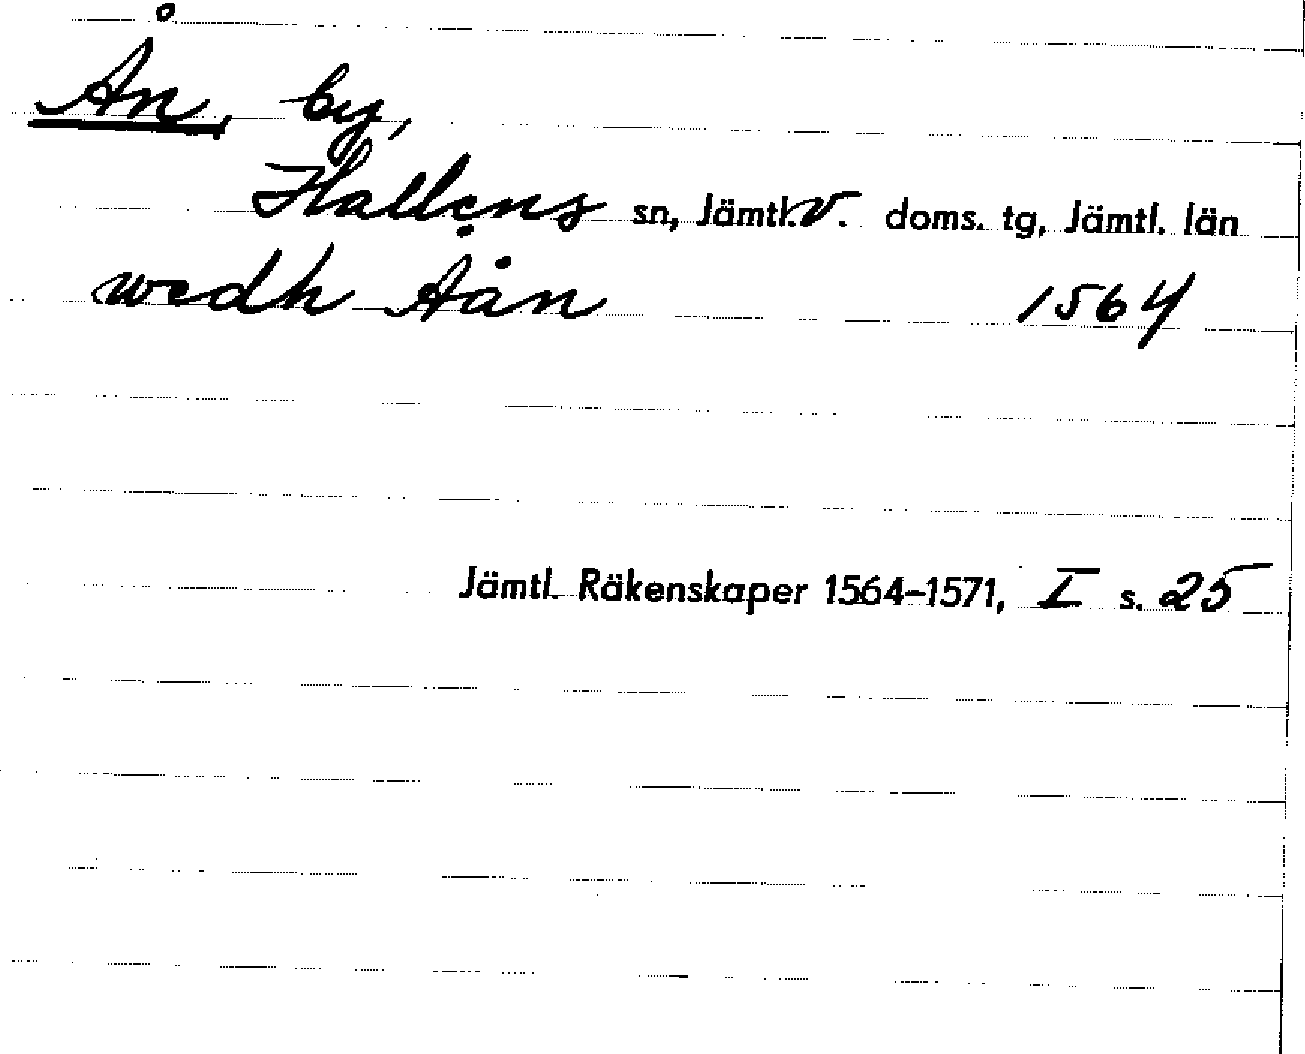 Ån, by,
Hallens sn, Jämtl. v. doms. tg, Jämtl. län
wedh Aån 1564
Jämtl. Räkenskaper 1564-1571, I s. 25